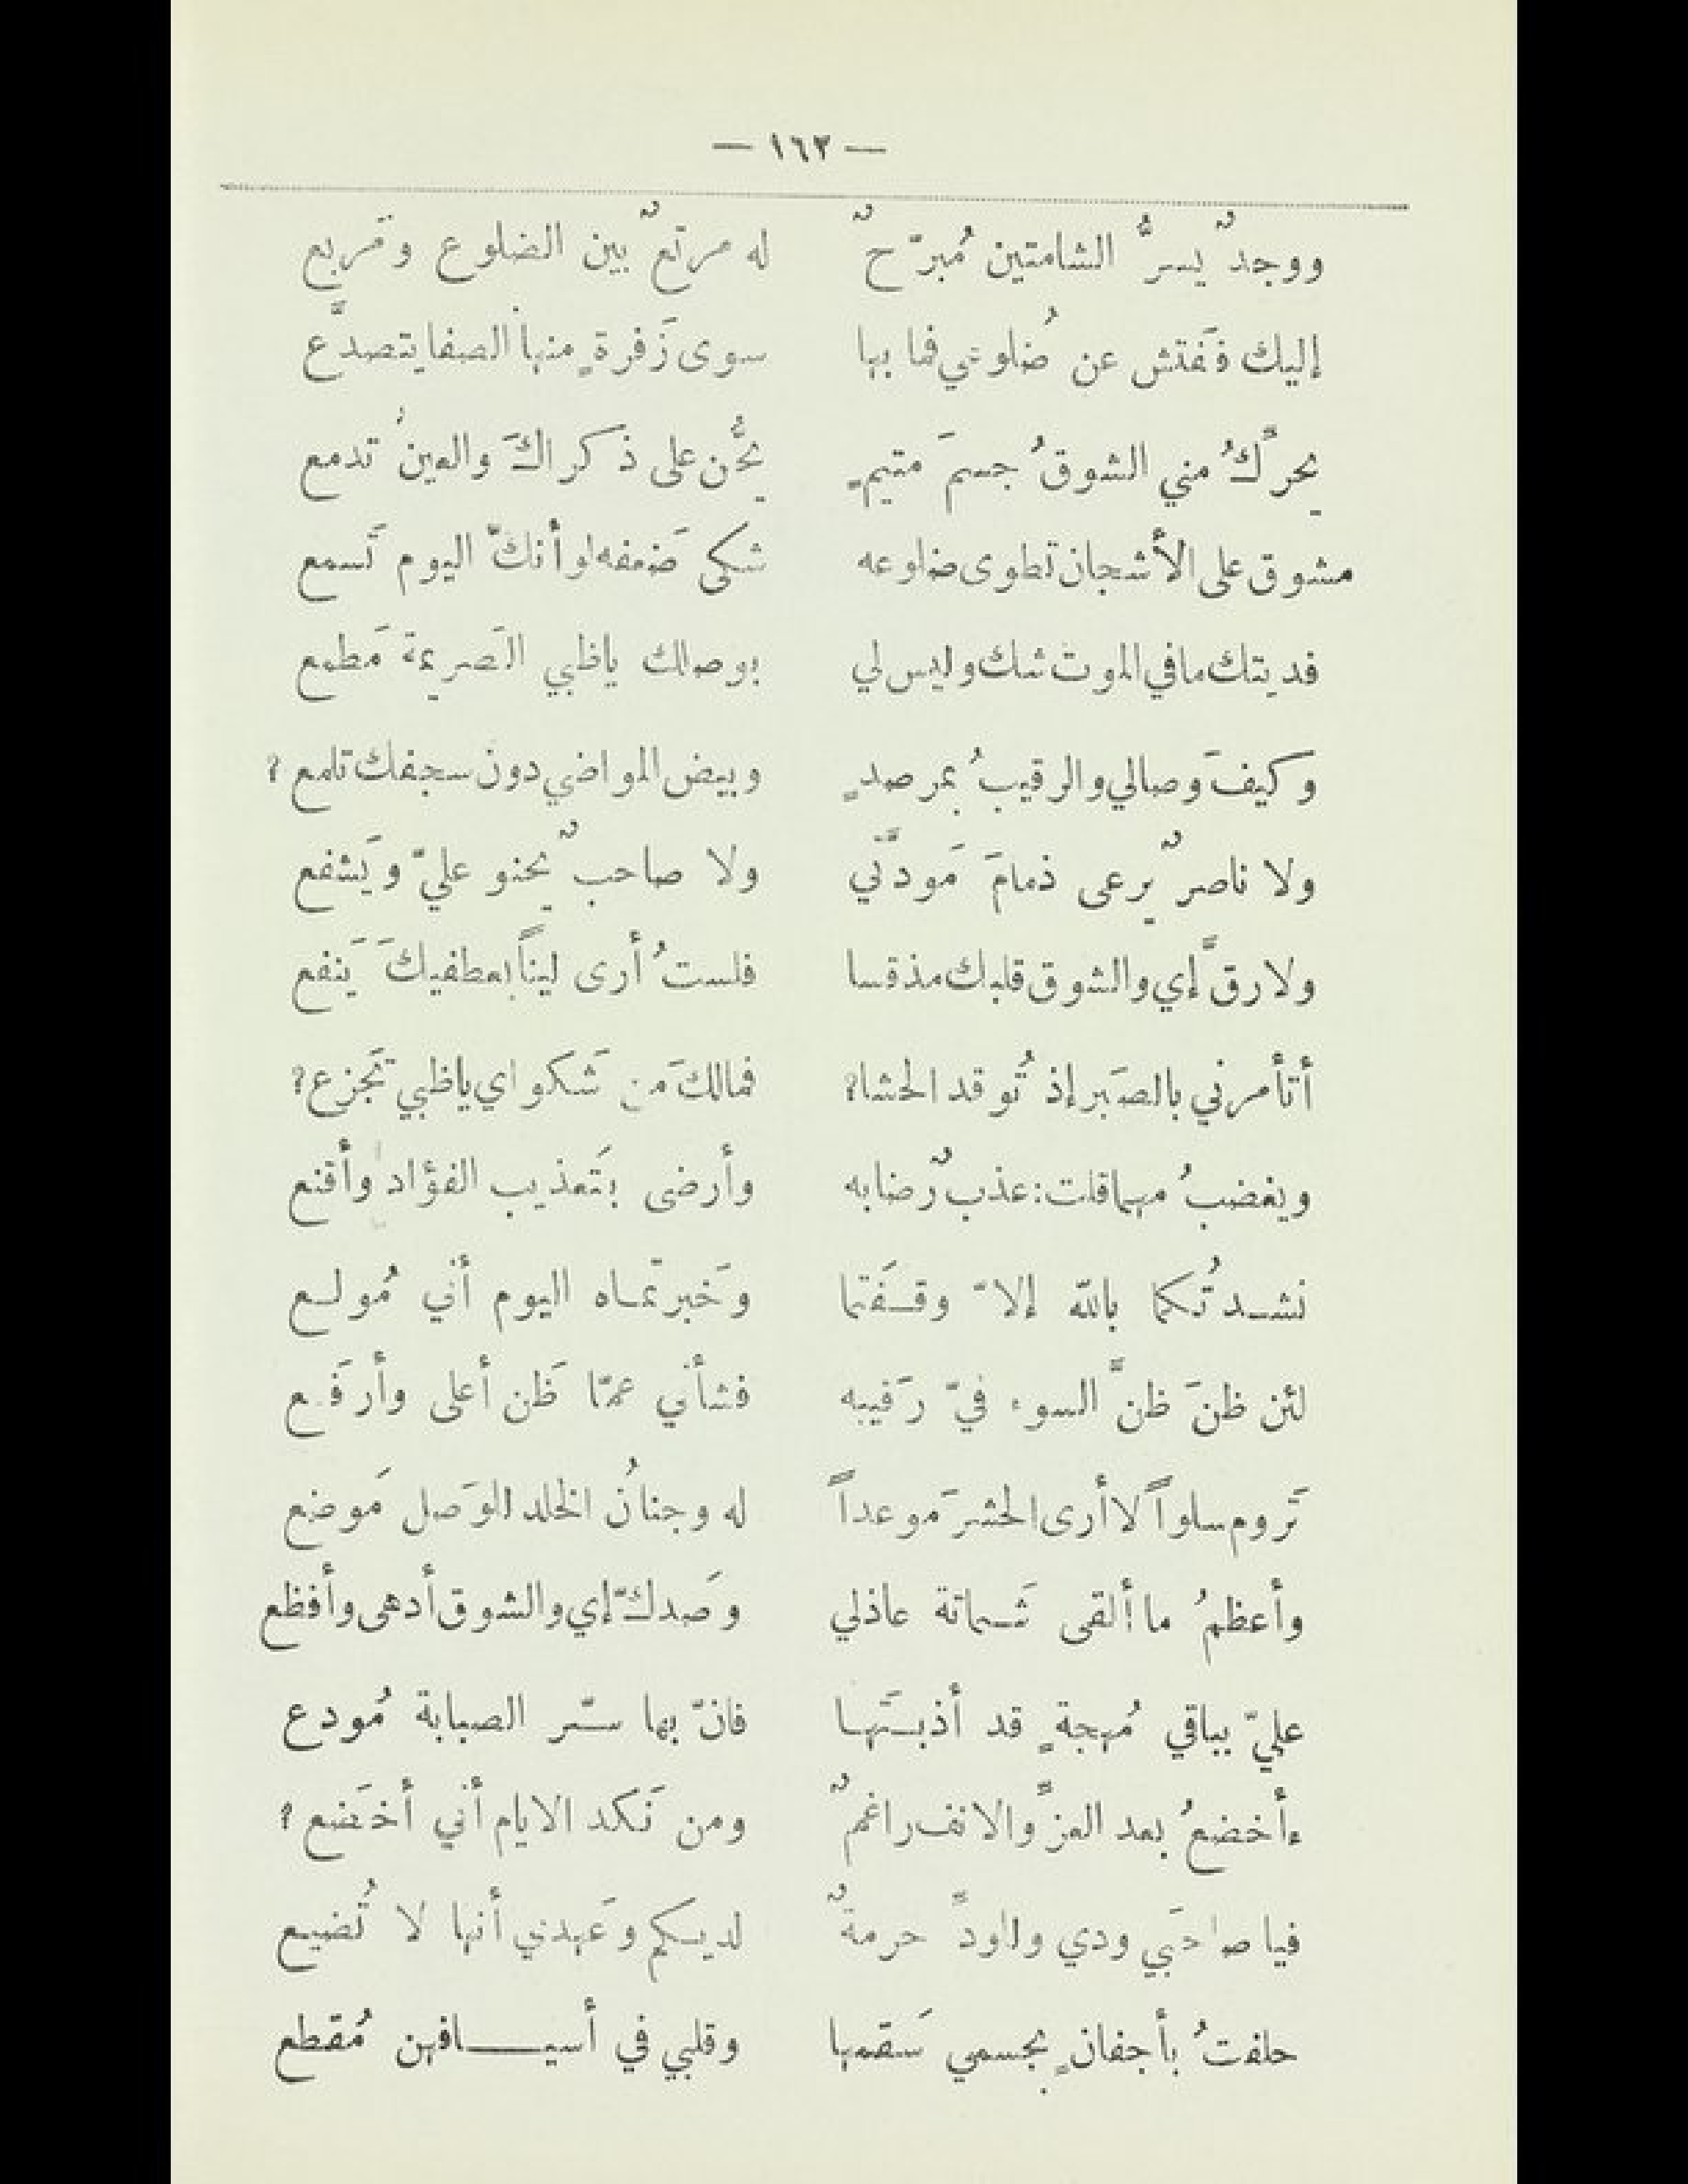 — ١٦٢ —
ووجدٌ يسرُّ الشامتين مُبرّحٌ له مرتعٌ بين الضلوع ومَربع
إليك فَفتش عن ضُلوعي فما بها سوى زَفرةٍ منها الصفا يتصدَّع
يحرِّكُ مني الشوقُ جسمَ متيمٍ يحُّن على ذكراكَ والعينُ تدمع
مشوق على الأشجان تطوى ضلوعه شكى ضَعفه لو أنكّ اليوم تَسمع
فديتك ما في الموت شك وليس لي بوصالك ياظبي الصَريمة مَطمع
وكيفَ وصالي والرقيبُ بمرصدٍ وبيض المواضي دون سجفك تلمع ؟
ولا ناصرٌ يرعى ذمامَ مَودَّتي ولا صاحبٌ يحنو عليّ ويَشفع
ولا رقَّ إي والشوق قلبك مذ قسا فلستُ أرى ليناً بعطفيكَ يَنفع
أتأمرني بالصَبر إذ تُوقد الحشا؟ فمالكَ من شَكواي ياظبي تَجزع؟
ويغضبُ مهما قلت: عذبٌ رضابه وأرضى بتَعذيب الفؤاد وأقنع
نشـدتُكما بالله إلاّ وقـفَتما وخَبرتمّـاه اليوم أني مُولـع
لئن ظنَ ظنَّ السوء فيّ رَقيبه فشأني عمّا ظَن أعلى وأرفَـع
تَروم سلواً لا أرى الحشرَ موعداً له وجنانُ الخلد للوَصل مَوضع
وأعظمُ ما ألقى شَـماتة عاذلي وصَدكّ إي والشوق أدهى وأفظع
عليّ بباقي مُهجةٍ قد أذبـتَهـا فانّ بها سـّر الصبابة مُودع
ءأخضعُ بعد العزِّ والانف راغمٌ ومن نَكد الايام أني أخضَع ؟
فيا صاحبَي ودي وللودِّ حرمةٌ لديـكم وعَهدني أنها لا تُضيـع
حلفتُ بأجفانٍ بجسمي سَقمها وقلبي في أسيـــافهن مُقطع